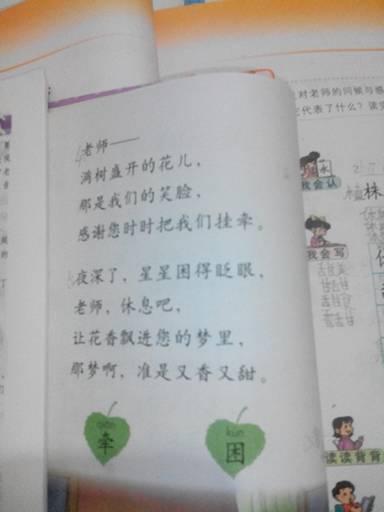 4老师——
满树盛开的花儿，
那是我们的笑脸，
感谢您时时把我们挂牵。
夜深了，星星困得眨眼，
老师，休息吧，
让花香飘进您的梦里，
那梦啊，准是又香又甜。
qiān
牵
kùn
困
对老师的问候与感
它代表了什么？读完
永
我会认
植株
我会写
读读背背